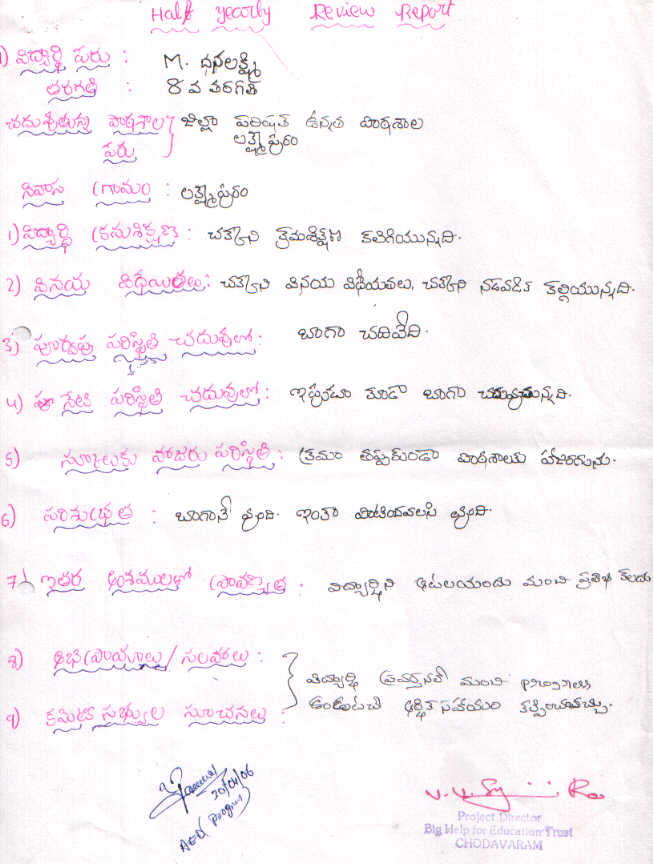 Half yearly Review Report
1) విద్యార్థి పేరు : M. ధనలక్ష్మి
తరగతి : 8 వ తరగతి
చదువుతున్న పాఠశాల పేరు } జిల్లా పరిషత్ ఉన్నత పాఠశాల
లక్ష్మీపురం
నివాస గ్రామం : లక్ష్మీపురం
1) విద్యార్థి క్రమశిక్షణ : చక్కని క్రమశిక్షణ కలిగియున్నది.
2) వినయ విధేయతలు : చక్కని వినయ విధేయతలు, చక్కని నడవడిక కల్గియున్నది.
3) పూర్వపు పరిస్థితి చదువులో : బాగా చదివేది.
4) నేటి పరిస్థితి చదువులో : ఇప్పుడు కూడా బాగా చదువుతున్నది.
5) స్కూలుకు హాజరు పరిస్థితి : క్రమం తప్పకుండా పాఠశాలకు హాజరగును.
6) పరిశుభ్రత : బాగానే వుంది. ఇంకా పాటించవలసి వుంది.
7) ఇతర అంశములలో ప్రావీణ్యత : విద్యార్థిని ఆటలయందు మంచి ప్రతిభ కలదు
8) అభిప్రాయాలు / సలహాలు :
విద్యార్థి ప్రవర్తనలో మంచి progress
9) కమిటీ సభ్యుల సూచనలు :
ఉండుటచే ఆర్థిక సహాయం కల్పించవచ్చు.
20/04/06
Project Director
Big Help for Education Trust
CHODAVARAM